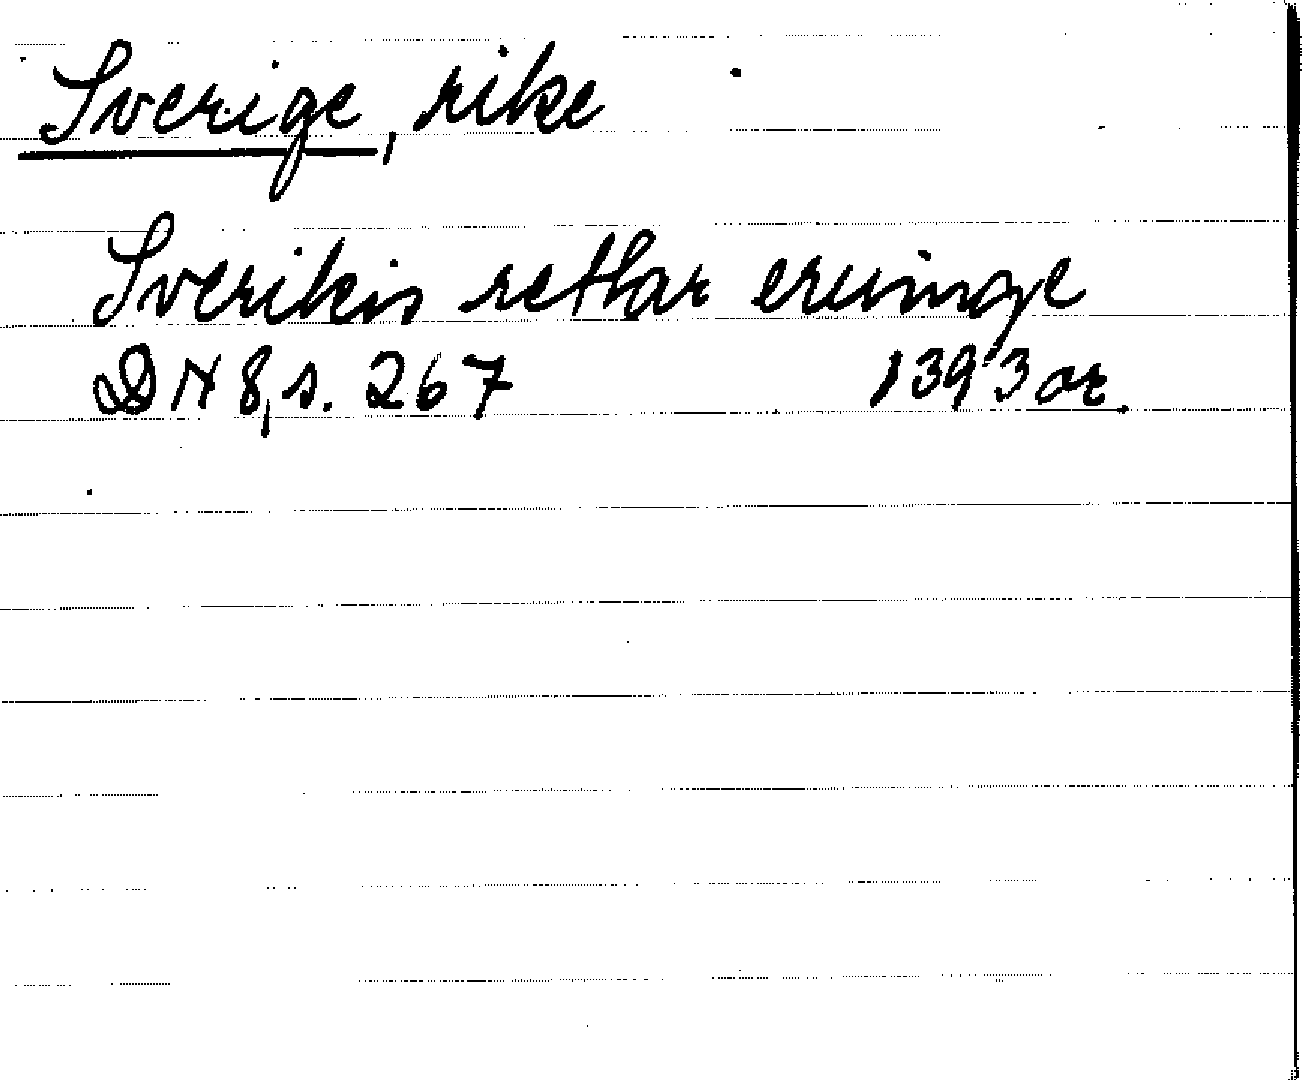 Sverige, rike
Sverikis rethar eruinge
DN 8, s. 267 1393 or.